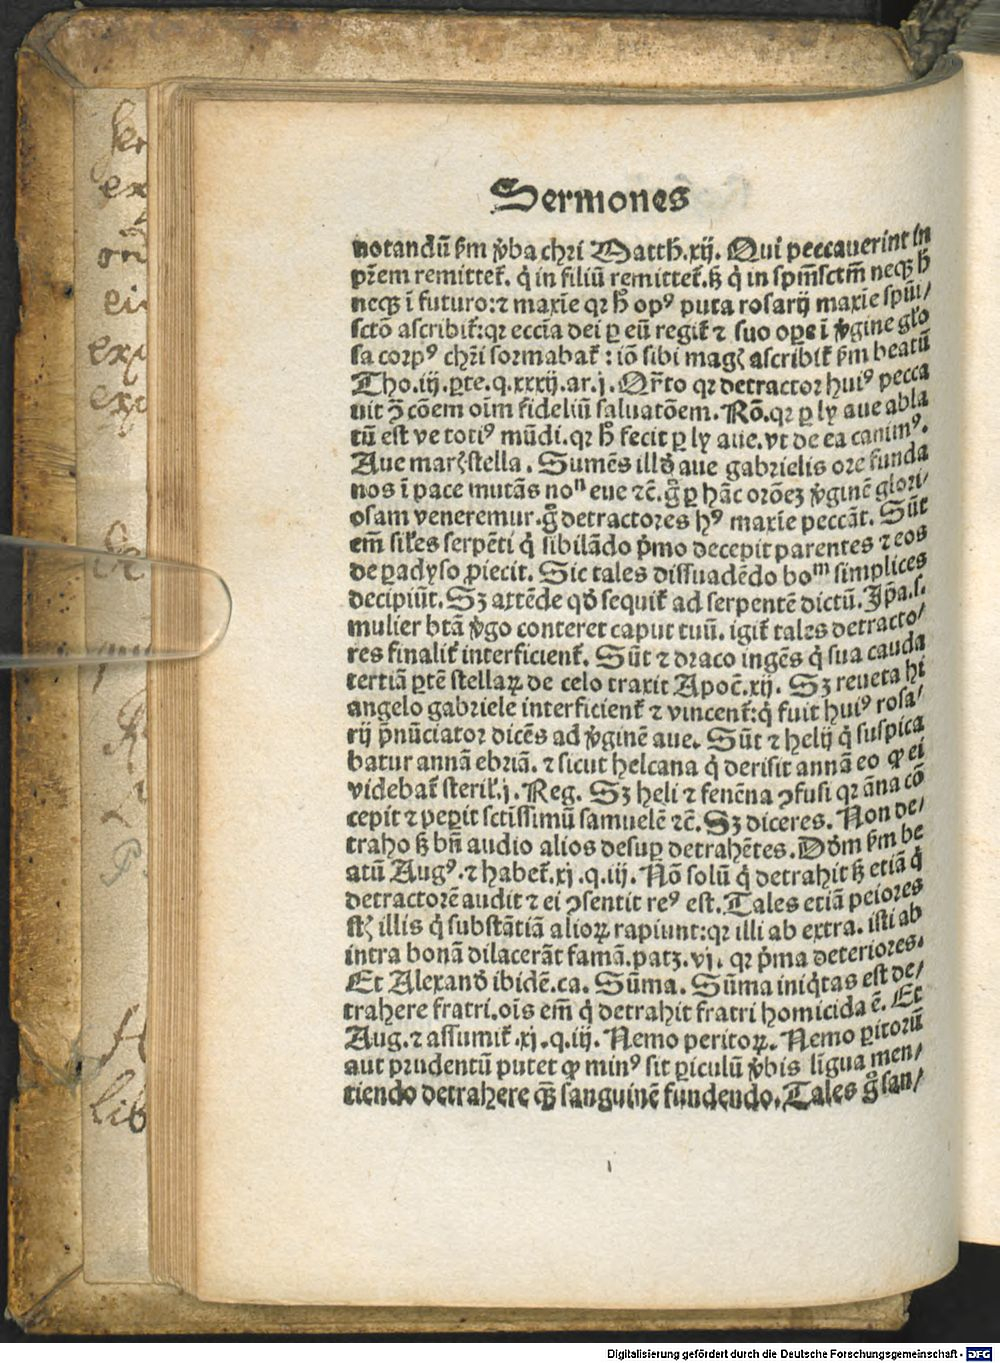 Sermones
notandū ẜm v̾ba chr̄i Matth̄.xij. Qui peccauerint in
pr̄em remittet᷑. q̇ in filiū remittet᷑.ẜꝫ q̇ in spm̄sctm̄ neqꝫ h̄
neqꝫ ī futuro:⁊ maxīe qꝛ h̄ opꝰ puta rosarij maxīe spūi/
sctō ascribit᷑:qꝛ eccīa dei ꝑ eū regit᷑ ⁊ suo oꝑe ī v̾gine glo
sa corpꝰ chr̄i formabat᷑ : iō sibi magꝭ ascribit᷑ ẜm beatū
Tho.iij.ꝑte.q.xxxij.ar.j. Qr̄to qꝛ detractor huiꝰ pecca
uit ꝯ̄ cōem oīm fideliū saluatōem. Rō.qꝛ ꝑ ly aue abla
tū est ve totiꝰ mūdi.qꝛ h̄ fecit ꝑ ly aue.vt de ea canimꝰ.
Aue marꝭ stella. Sumēs illđ aue gabrielis ore funda
nos ī pace mutās noⁿ eue ⁊c̄. g̊ ꝑ hāc orōeꝫ v̾ginē glori/
osam veneremur.g̊ detractores hꝰ maxīe peccāt. Sūt
em̄ sil̄es serpēti q̇ sibilādo p̄mo decepit parentes ⁊ eos
de ꝑadyso ꝓiecit. Sic tales dissuadēdo boᵐ simplices
decipiūt. Sꝫ attēde qđ sequit᷑ ad serpentē dictū. Ip̄a.s.
mulier btā v̾go conteret caput tuū. igit᷑ tales detracto/
res finalit᷑ interficient᷑. Sūt ⁊ draco ingēs q̇ sua cauda
tertiā ꝑtē stellaꝝ de celo traxit Apoc̄.xij. Sꝫ reuera hi
angelo gabriele interficient᷑ ⁊ vincent᷑:q̇ fuit huiꝰ rosa/
rij p̄nūciator dicēs ad v̾ginē aue. Sūt ⁊ helij q̇ suspica
batur annā ebriā. ⁊ sicut helcana q̇ derisit annā eo ꝙ ei
videbat᷑ steril᷑.j. Reg. Sꝫ heli ⁊ fenēna ꝯfusi qꝛ āna cō
cepit ⁊ peꝑit sctissimū samuelē ⁊c̄. Sꝫ diceres. Non de/
traho ẜꝫ bn̄ audio alios desuꝑ detrahētes. Dōm ẜm be
atū Augꝰ. ⁊ habet᷑.xj.q.iij. Nō solū q̇ detrahit ẜꝫ etiā q̇
detractorē audit ⁊ ei ꝯsentit reꝰ est. Tales etiā peiores
st̄ illis q̇ substātiā alioꝝ rapiunt:qꝛ illi ab extra. isti ab
intra bonā dilacerāt famā.patꝫ.vj. qꝛ p̄ma deteriores.
Et Alexanđ ibidē.ca. Sūma. Sūma iniq̇tas est de/
trahere fratri.oīs em̄ q̇ detrahit fratri homicida ē. Et
Aug.⁊ assumit᷑.xj.q.iij. Nemo peritoꝝ. Nemo ꝑitorū
aut prudentū putet ꝙ minꝰ sit ꝑiculū v̾bis līgua men/
tiendo detrahere qꝫ̄ sanguinē fundendo. Tales g̊ san/
Digitalisierung gefördert durch die Deutsche Forschungsgemeinschaft - DFG